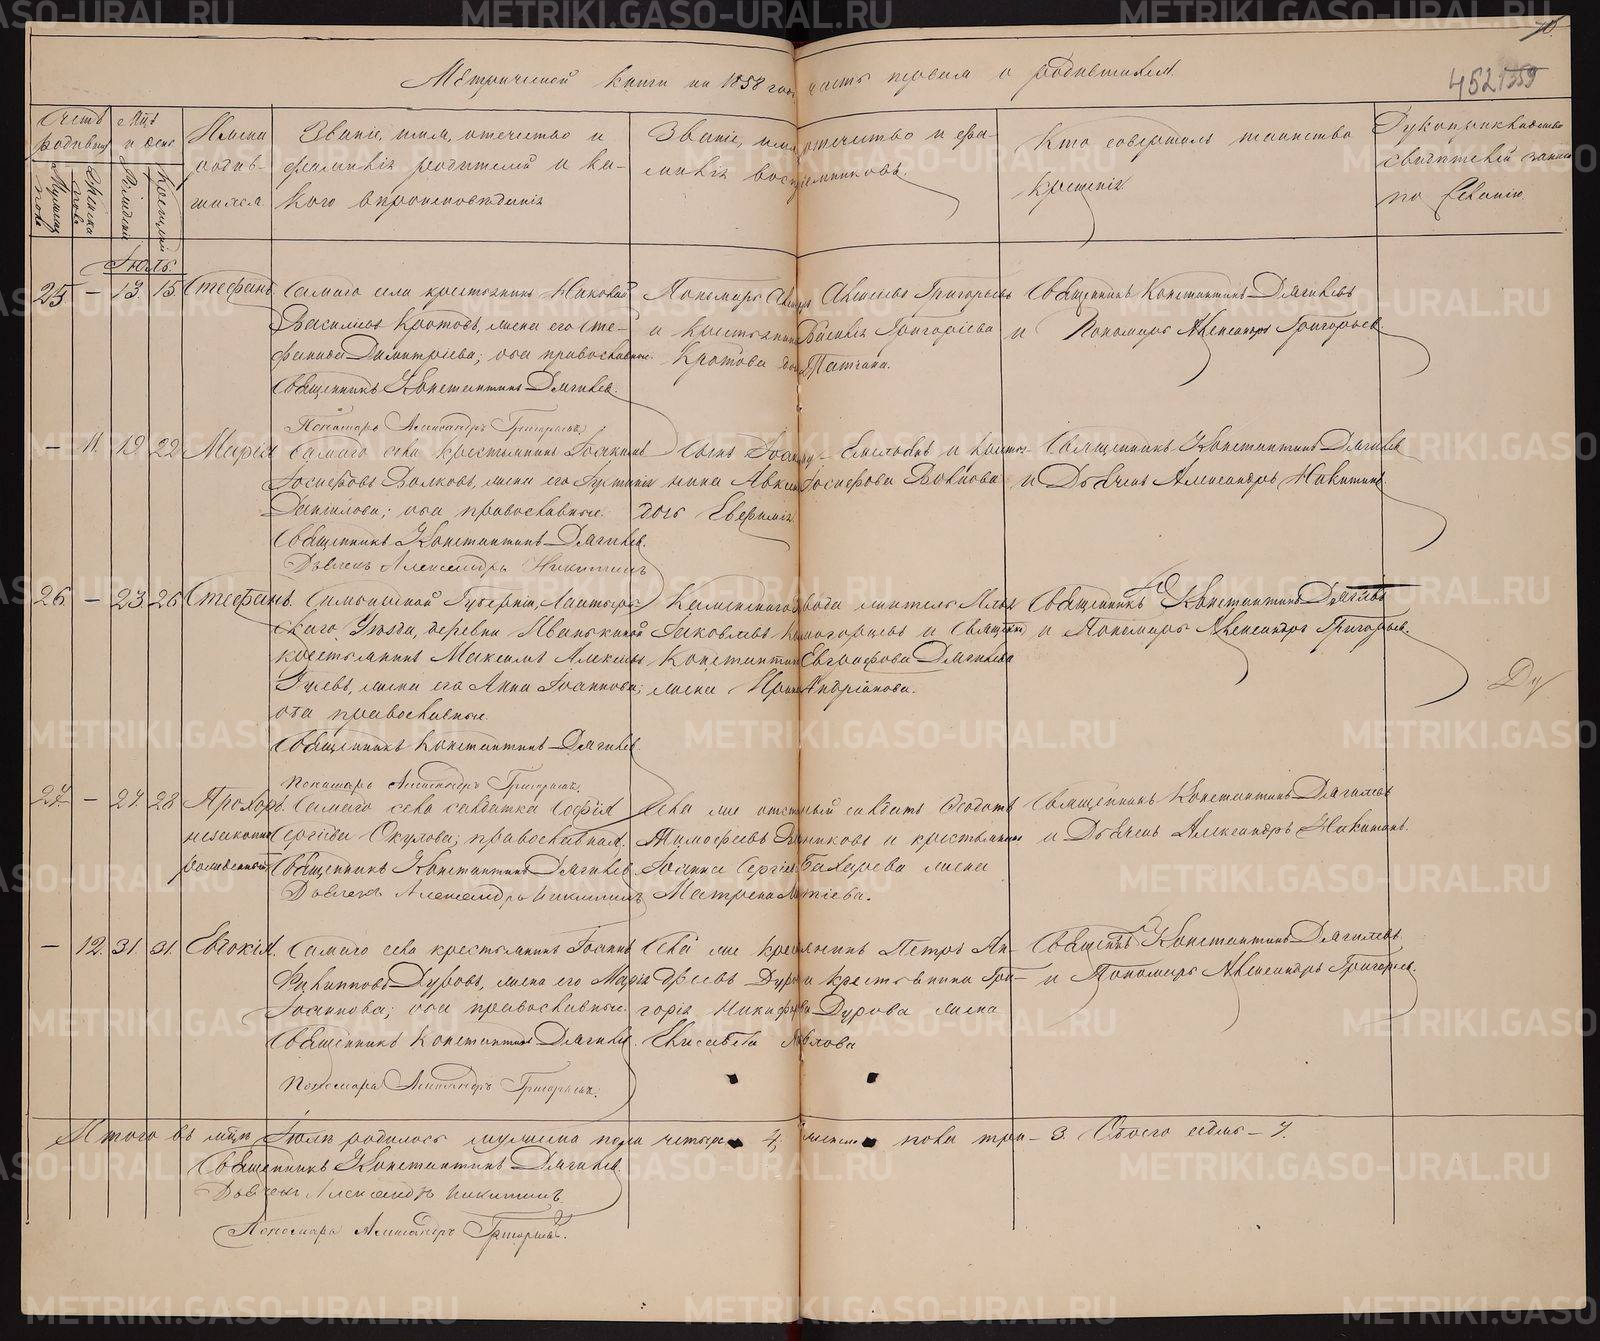 Метрической книги на 1858 годъ часть первая о родившихся.
70.
452 1359
Счетъ родившихся
Мужеска пола
Женска пола
Мѣс. и день
Рожденія
Крещенія
Имена родившихся
Званіе, имя, отечество и фамилія родителей и какого вѣроисповѣданія
Званіе, имя, отечество и фамилія воспріемниковъ.
Кто совершалъ таинство крещенія
Рукоприкладство свидѣтелей записи по желанію.
Іюль.
25 – 13. 15. Стефанъ
Самаго села крестьянинъ
Василіевъ Кротовъ, жена его Сте-
фанида Димитріева; оба православные.
Священникъ Константинъ Дягилевъ.
Пономарь Александръ Григорьевъ.
Пономарь Алексѣевъ Григорьевъ
и крестьянина Василія Григоріева
Кротова дочь Татіана.
Священникъ Константинъ Дягилевъ
и Пономарь Александръ Григорьевъ.
– 11. 19 22 Марія
Самаго села крестьянинъ Іоакимъ
Іосифовъ Волковъ, жена его Іустинія
Данилова; оба православные.
Священникъ Константинъ Дягилевъ.
Дьячекъ Александръ Никитинъ
нина Іосифова Волкова
дочь Евфимія.
Священникъ Константинъ Дягилевъ
и Дьячекъ Александръ Никитинъ.
26 – 23 26 Стефанъ.
Губерніи,
скаго Уѣзда, деревни
крестьянинъ Максимъ Алексѣевъ
Гилевъ, жена его Анна Іоаннова;
оба православные.
Священникъ Константинъ Дягилевъ.
Пономарь Александръ Григорьевъ.
Каменского завода житель Илья
Яковлевъ и Священника
Константина Евграфова Дягилева
жена Ирина Андріанова.
Священникъ Константинъ Дягилевъ
и Пономарь Александръ Григорьевъ.
27. – 27. 28 Прохоръ
незаконнорожденный
Самаго села солдатка Софія
Сергіева Окулова; православная.
Священникъ Константинъ Дягилевъ.
Дьячекъ Александръ Никитинъ
Села же отставный солдатъ Ѳедотъ
Тимофеевъ и крестьянина
Іоанна Сергіева Бахарева жена
Матрена
Священникъ Константинъ Дягилевъ
и Дьячекъ Александръ Никитинъ.
– 12. 31. 31. Евдокія.
Самаго села крестьянинъ Іоаннъ
Филипповъ Дуровъ, жена его Марія
Іоаннова; оба православные.
Священникъ Константинъ Дягилевъ.
Пономарь Александръ Григорьевъ.
Села же крестьянинъ Петръ
Дуровъ и крестьянина Гри-
горія Никифорова Дурова жена
Елисавета Павлова
Священникъ Константинъ Дягилевъ
и Пономарь Александръ Григорьевъ.
Итого въ мѣсяцѣ Іюлѣ родилось мужеска пола четыре 4, женска пола три – 3. Всего семь – 7.
Священникъ Константинъ Дягилевъ.
Дьячекъ Александръ Никитинъ.
Пономарь Александръ Григорьевъ.
METRIKI.GASO-URAL.RU